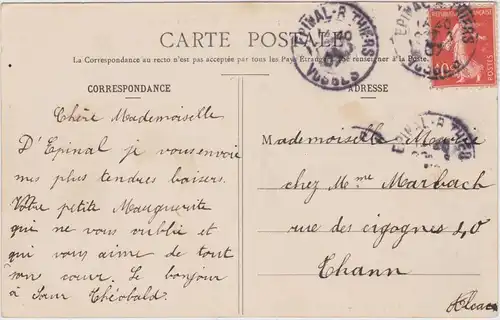 CARTE POSTALE
La Correspondance au recto n'est pas acceptée par tous les Pays Etrangers. Se renseigner à la Poste.
CORRESPONDANCE
Chère Mademoiselle
D'Epinal je vous envoie
mes plus tendres baisers.
Votre petite Marguerite
qui ne vous oublie et
qui vous aime de tout
son cœur. Le bonjour
à Sœur Théobald.
ADRESSE
Mademoiselle Marie
chez Mme Marbach
rue des cigognes 40
Thann
Alsace
EPINAL-R THIERS
VOSGES
EPINAL-R THIERS
VOSGES
EPINAL-R THIERS
10
POSTES